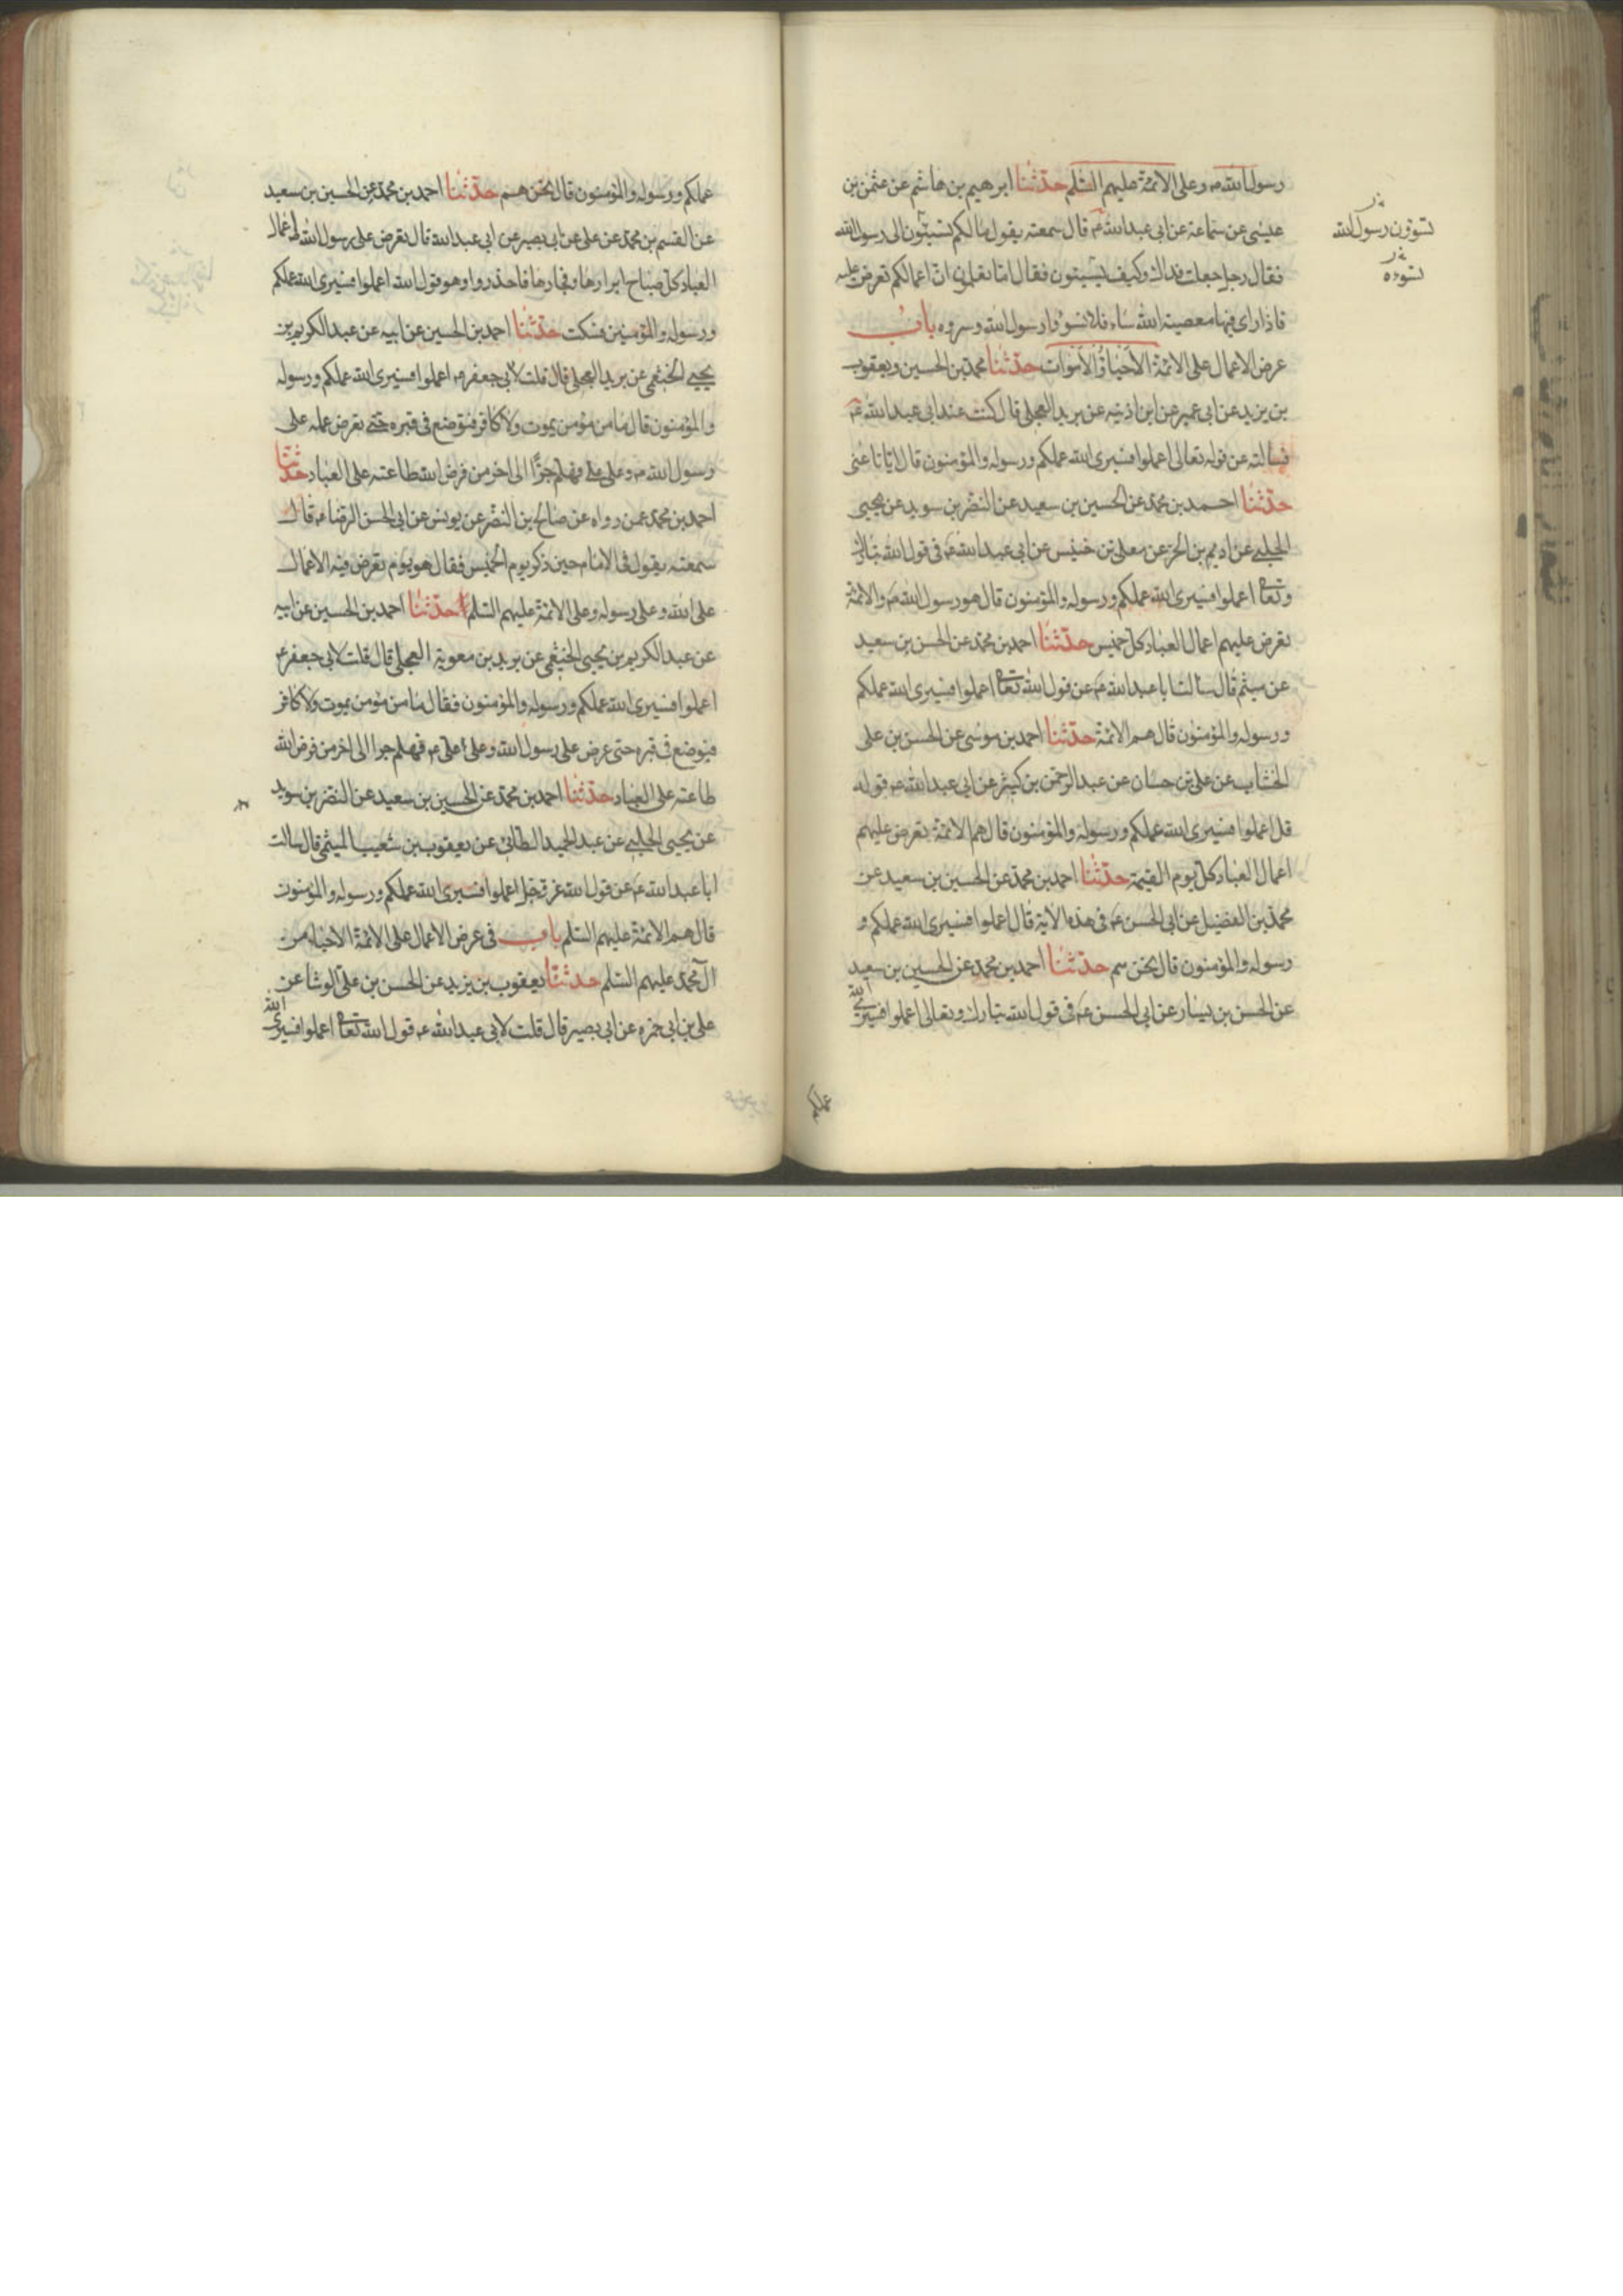 رسول الله ص وعلى الائمة عليهم السلم حدثنا ابرهيم بن هاشم عن عثمن بن
عيسى عن سماعة عن ابى عبد الله ع قال سمعته يقول مالكم تسيئون الى رسول الله
فقال رجل جعلت فداك وكيف يسيئون فقال اما تعلمون ان اعمالكم تعرض عليه
فاذا راى فيها معصية الله ساءه فلا تسوؤا رسول الله وسروه باب
عرض الاعمال على الائمة الاحياء والاموات حدثنا محمد بن الحسين ويعقوب
بن يزيد عن ابى عمير عن ابن اذينه عن بريد العجلى قال كنت عند ابى عبد الله ع
فسالته عن قوله تعالى اعملوا فسيرى الله عملكم ورسوله والمؤمنون قال ايانا عنى
حدثنا احمد بن محمد عن الحسين بن سعيد عن النضر بن سويد عن يحيى
الحلبى عن اديم بن الحر عن معلى بن خنيس عن ابى عبد الله ع فى قول الله تبارك
وتعا اعملوا فسيرى الله عملكم ورسوله والمؤمنون قال هو رسول الله ص والائمة
تعرض عليهم اعمال العباد كل خميس حدثنا احمد بن محمد عن الحسن بن سعيد
عن ميثم قال سالت ابا عبد الله ع عن قول الله تعا اعملوا فسيرى الله عملكم
ورسوله والمؤمنون قال هم الائمة حدثنا احمد بن موسى عن الحسن بن على
الخشاب عن على بن حسان عن عبد الرحمن بن كثير عن ابى عبد الله ع قوله
قل اعملوا فسيرى الله عملكم ورسوله والمؤمنون قال هم الائمة تعرض عليهم
اعمال العباد كل يوم القيمة حدثنا احمد بن محمد عن الحسين بن سعيد عن
محمد بن الفضيل عن ابى الحسن ع فى هذه الاية قال اعملوا فسيرى الله عملكم و
رسوله والمؤمنون قال نحن هم حدثنا احمد بن محمد عن الحسين بن سعيد
عن الحسن بن بشار عن ابى الحسن ع فى قول الله تبارك وتعالى اعملوا فسيرى الله
عملكم
رسول الله
عملكم ورسوله والمؤمنون قال نحن هم حدثنا احمد بن محمد عن الحسين بن سعيد
عن القسم بن محمد عن على عن ابى بصير عن ابى عبد الله قال تعرض على رسول الله اعمال
العباد كل صباح ابرارها وفجارها فاحذروا وهو قول الله اعملوا فسيرى الله عملكم
ورسوله والمؤمنين فسكت حدثنا احمد بن الحسين عن ابيه عن عبد الكريم بن
يحيى الخثعمى عن بريد العجلى قال قلت لابى جعفر ع اعملوا فسيرى الله عملكم ورسوله
والمؤمنون قال ما من مؤمن يموت ولا كافر فتوضع فى قبره حتى تعرض عمله على
رسول الله ص وعلى على فهلم جرا الى اخر من فرض الله طاعته على العباد حدثنا
احمد بن محمد عمن رواه عن صالح بن النضر عن يونس عن ابى الحسن الرضا ع قال
سمعته يقول فى الايام حين ذكر يوم الخميس فقال هو يوم تعرض فيه الاعمال
على الله وعلى رسوله وعلى الائمة عليهم السلم حدثنا احمد بن الحسين عن ابيه
عن عبد الكريم بن يحيى الخثعمى عن بريد بن معوية العجلى قال قلت لابى جعفر ع
اعملوا فسيرى الله عملكم ورسوله والمؤمنون فقال ما من مؤمن يموت ولا كافر
فيوضع فى قبره حتى عرض على رسول الله وعلى على ع فهلم جرا الى اخر من فرض الله
طاعته على العباد حدثنا احمد بن محمد عن الحسين بن سعيد عن النضر بن سويد
عن يحيى الحلبى عن عبد الحميد الطائى عن يعقوب بن شعيب الميثمى قال سالت
ابا عبد الله ع عن قول الله عز وجل اعملوا فسيرى الله عملكم ورسوله والمؤمنون
قال هم الائمة عليهم السلم باب فى عرض الاعمال على الائمة الاحياء من
ال محمد عليهم السلم حدثنا يعقوب بن يزيد عن الحسن بن على الوشا عن
على بن ابى حمزه عن ابى بصير قال قلت لابى عبد الله ع قول الله تعا اعملوا فسيرى الله